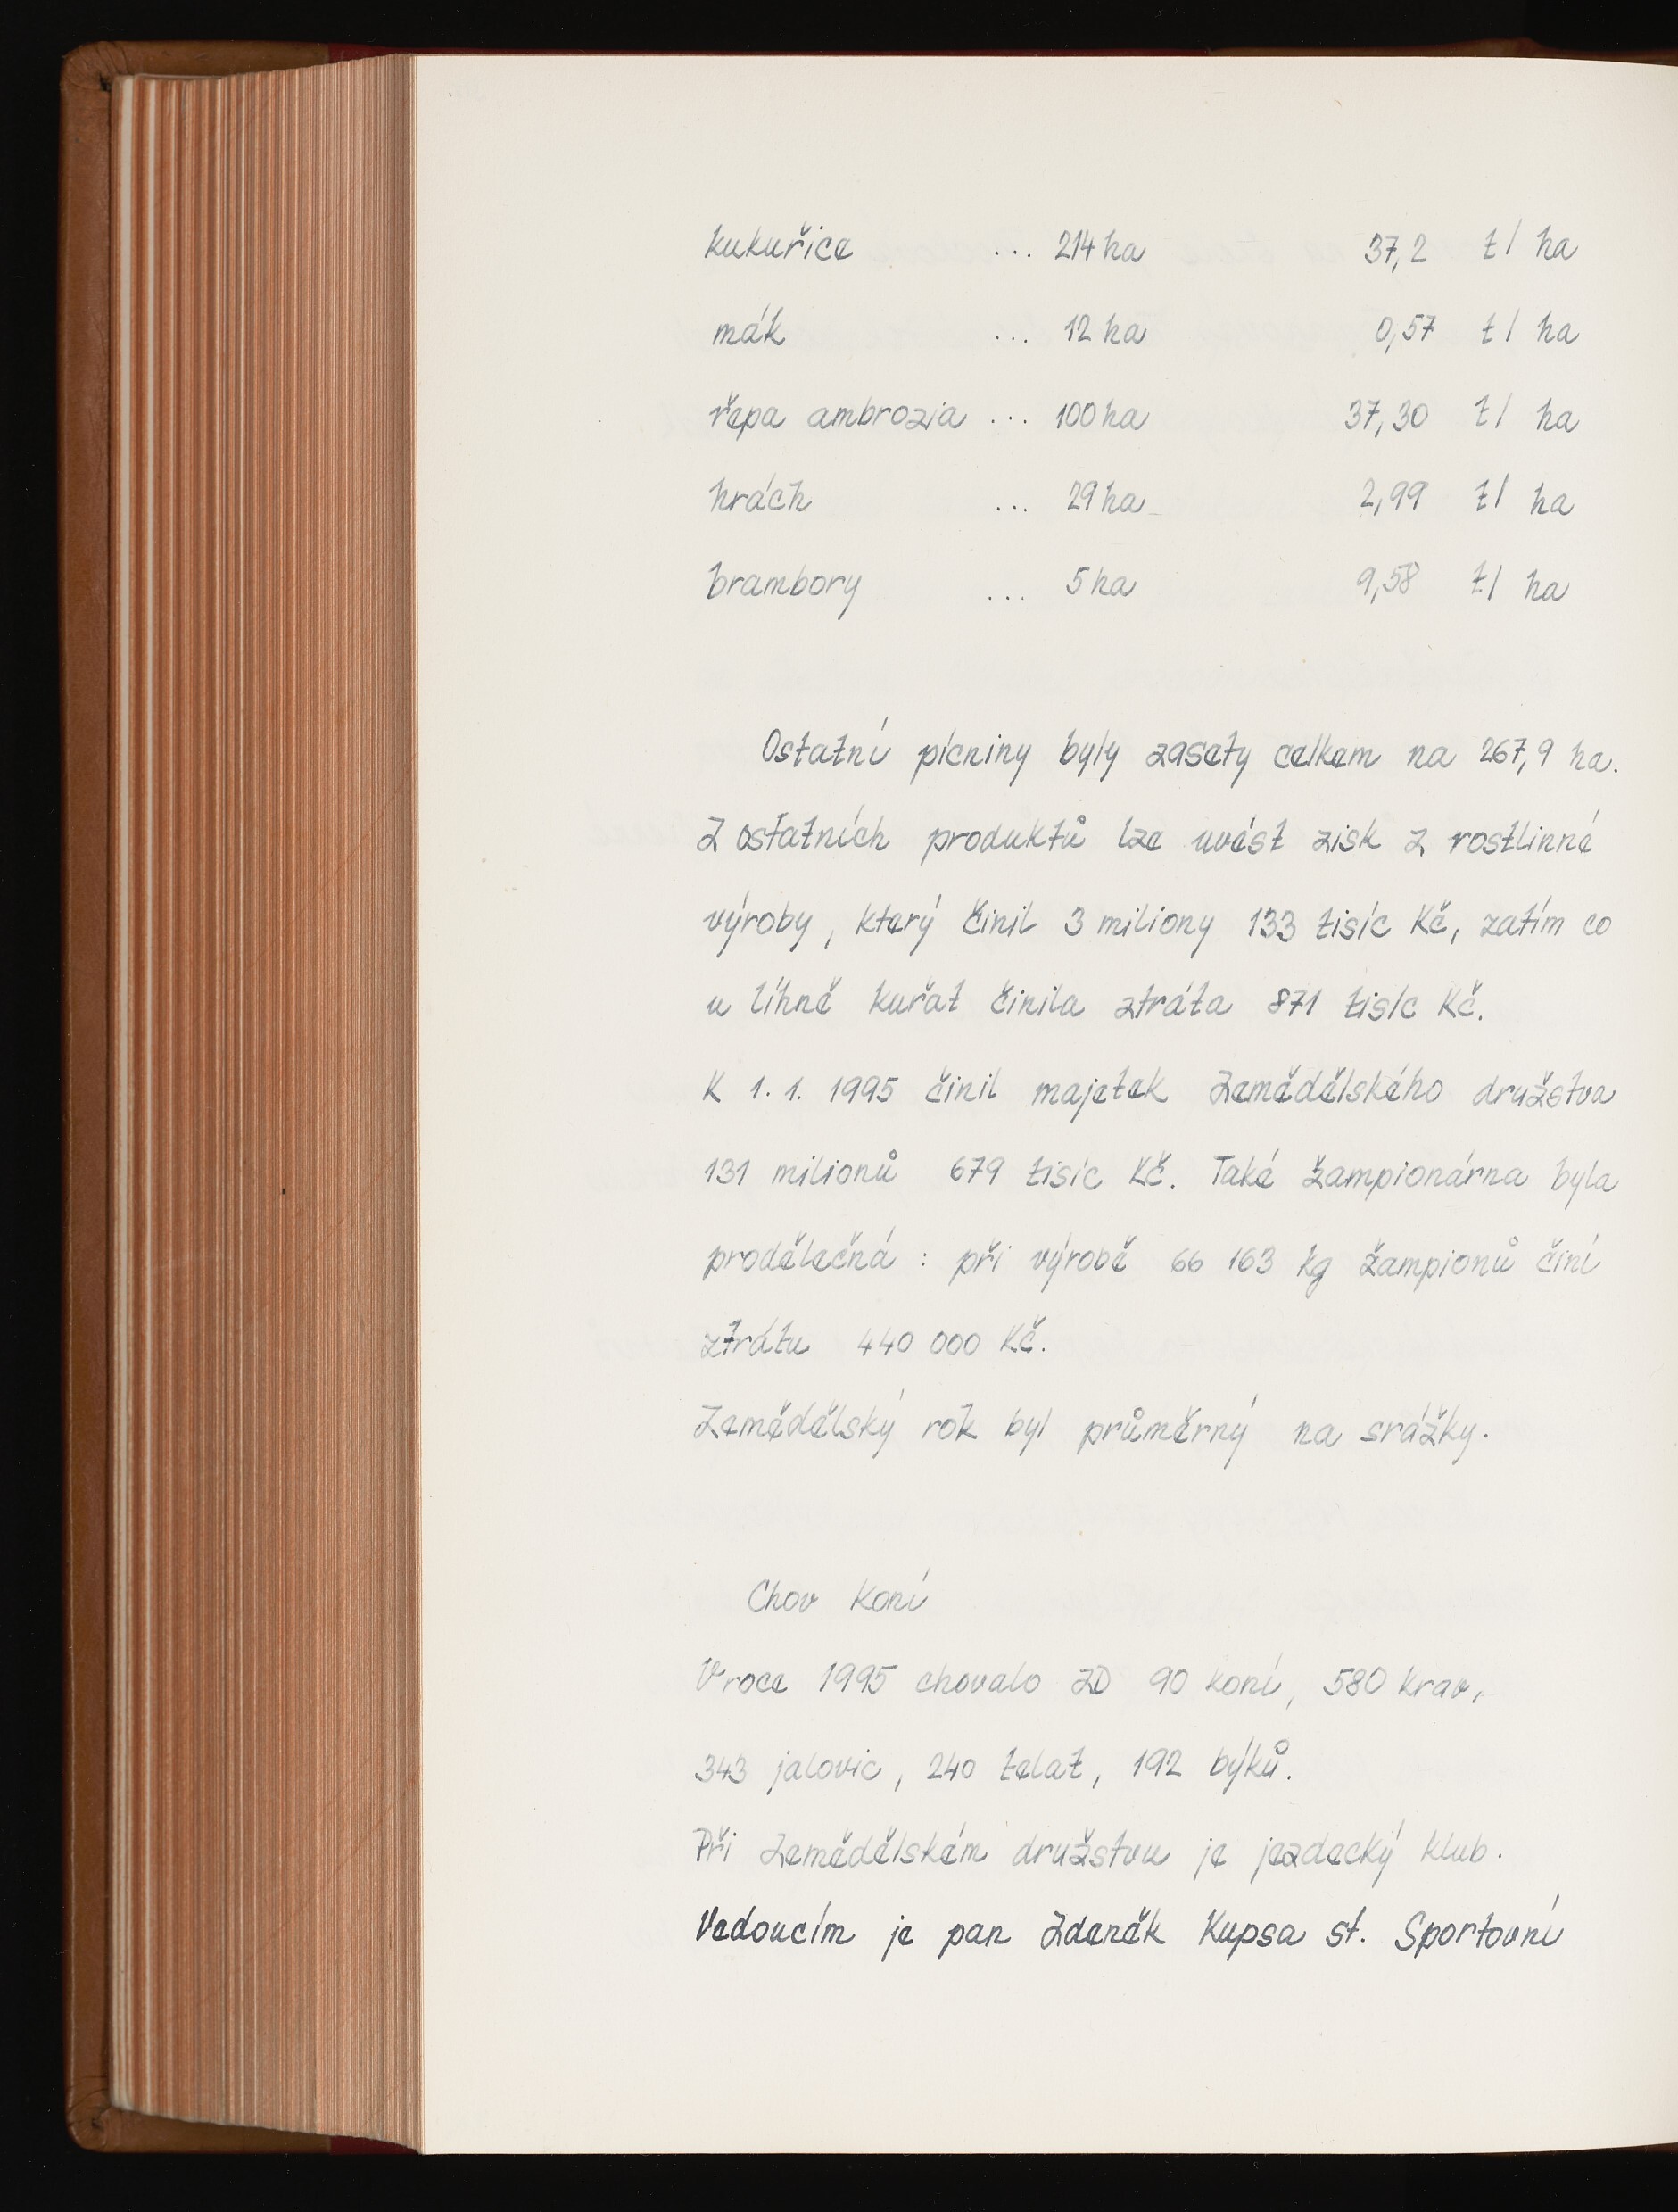 kukuřice ... 214 ha 37,2 t/ ha
mák ... 12 ha 0,57 t/ ha
řepa ambrozia ... 100 ha 37,30 t/ ha
hrách ... 29 ha 2,99 t/ ha
brambory ... 5 ha 9,58 t/ ha
Ostatní pícniny byly zasety celkem na 267,9 ha.
Z ostatních produktů lze uvést zisk z rostlinné
výroby, který činil 3 miliony 133 tisíc Kč, zatím co
u líhně kuřat činila ztráta 871 tisíc Kč.
K 1. 1. 1995 činil majetek Zemědělského družstva
131 milionů 679 tisíc Kč. Také žampionárna byla
prodělečná : při výrobě 66 163 kg žampionů činí
ztrátu 440 000 Kč.
Zemědělský rok byl průměrný na srážky.
Chov koní
V roce 1995 chovalo ZD 90 koní, 580 krav,
343 jalovic, 240 telat, 192 býků.
Při Zemědělském družstvu je jezdecký klub.
Vedoucím je pan Zdeněk Kupsa st. Sportovní